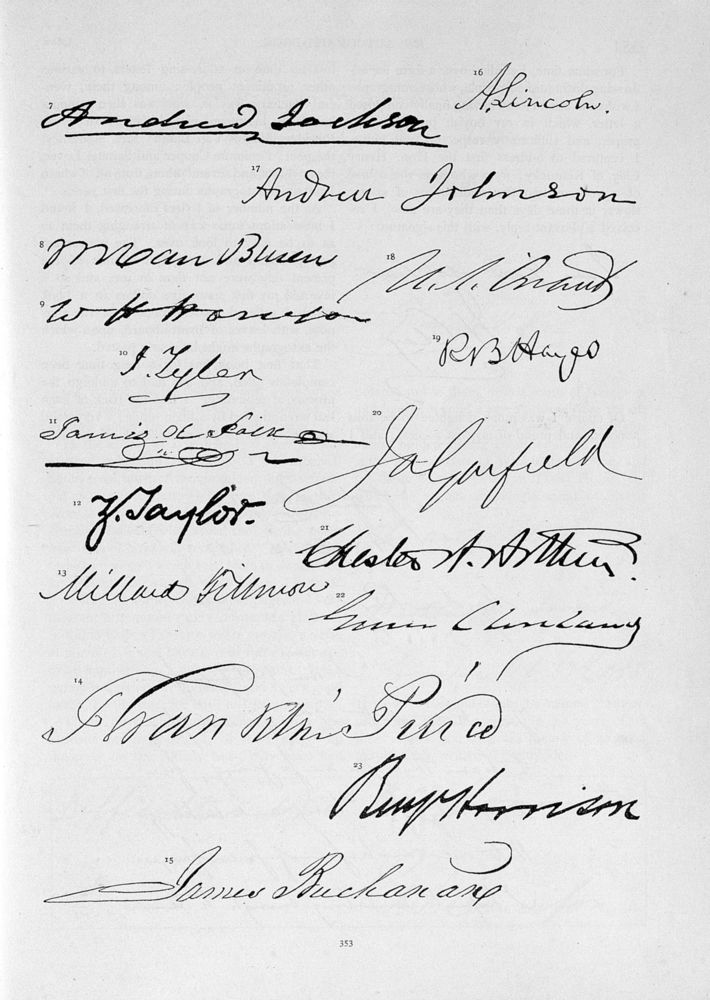 16 A. Lincoln.
7 Andrew Jackson
17 Andrew Johnson
8 M Van Buren
18 U. S. Grant
9 W H Harrison
19 R B Hayes
10 J. Tyler
20 J A Garfield
11 James K Polk
12 Z. Taylor.
21 Chester A. Arthur.
13 Millard Fillmore
22 Grover Cleveland
14 Franklin Pierce
23 Benj Harrison
15 James Buchanan
353